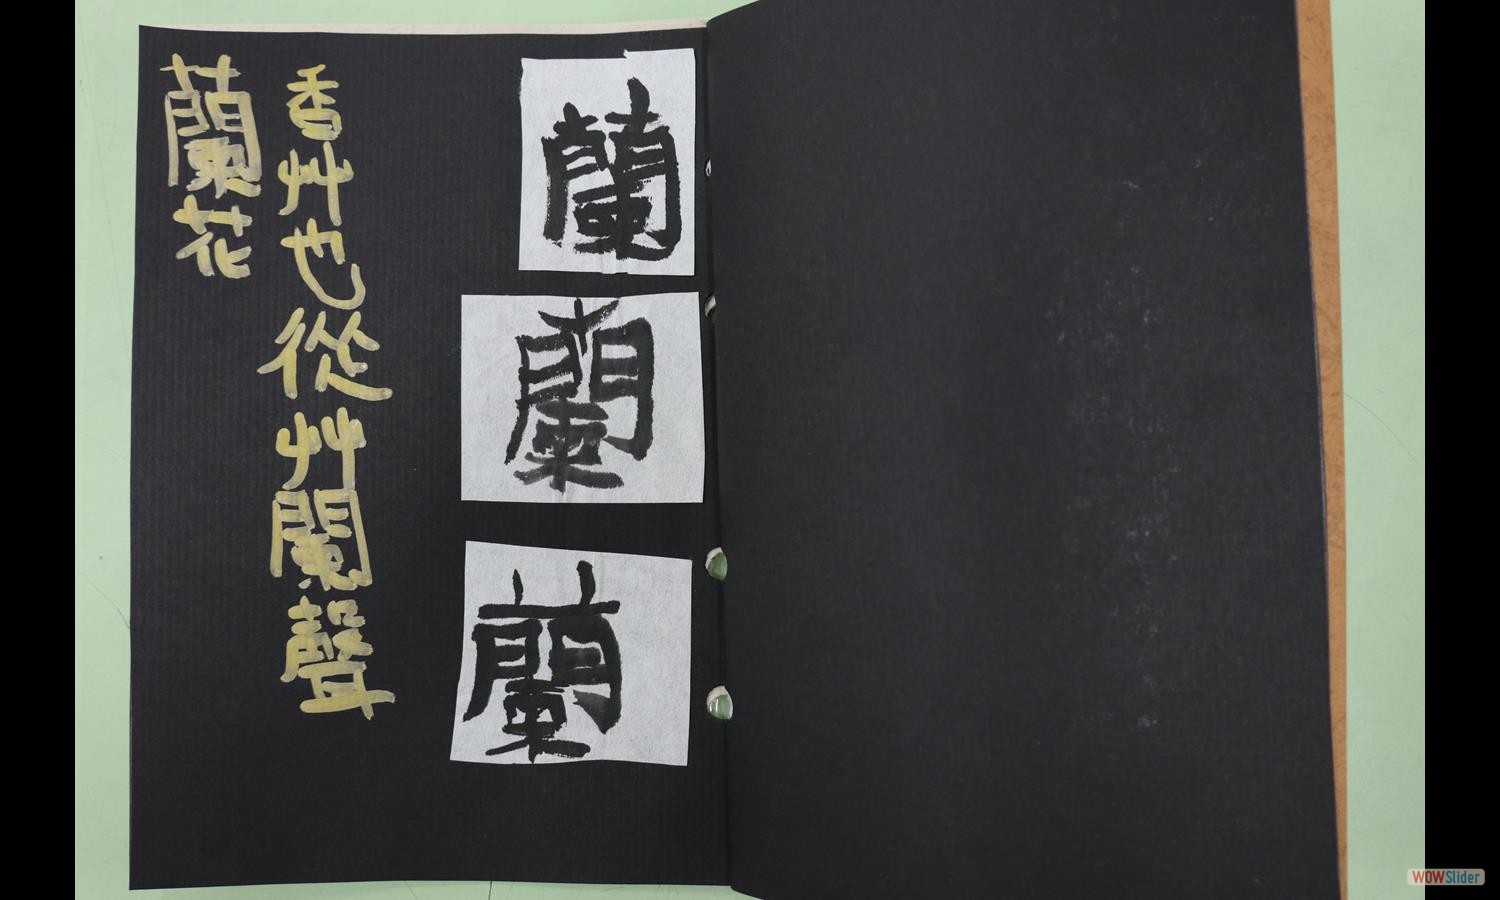 蘭
蘭
蘭
香艸也從艸闌聲
蘭花
WOWSlider